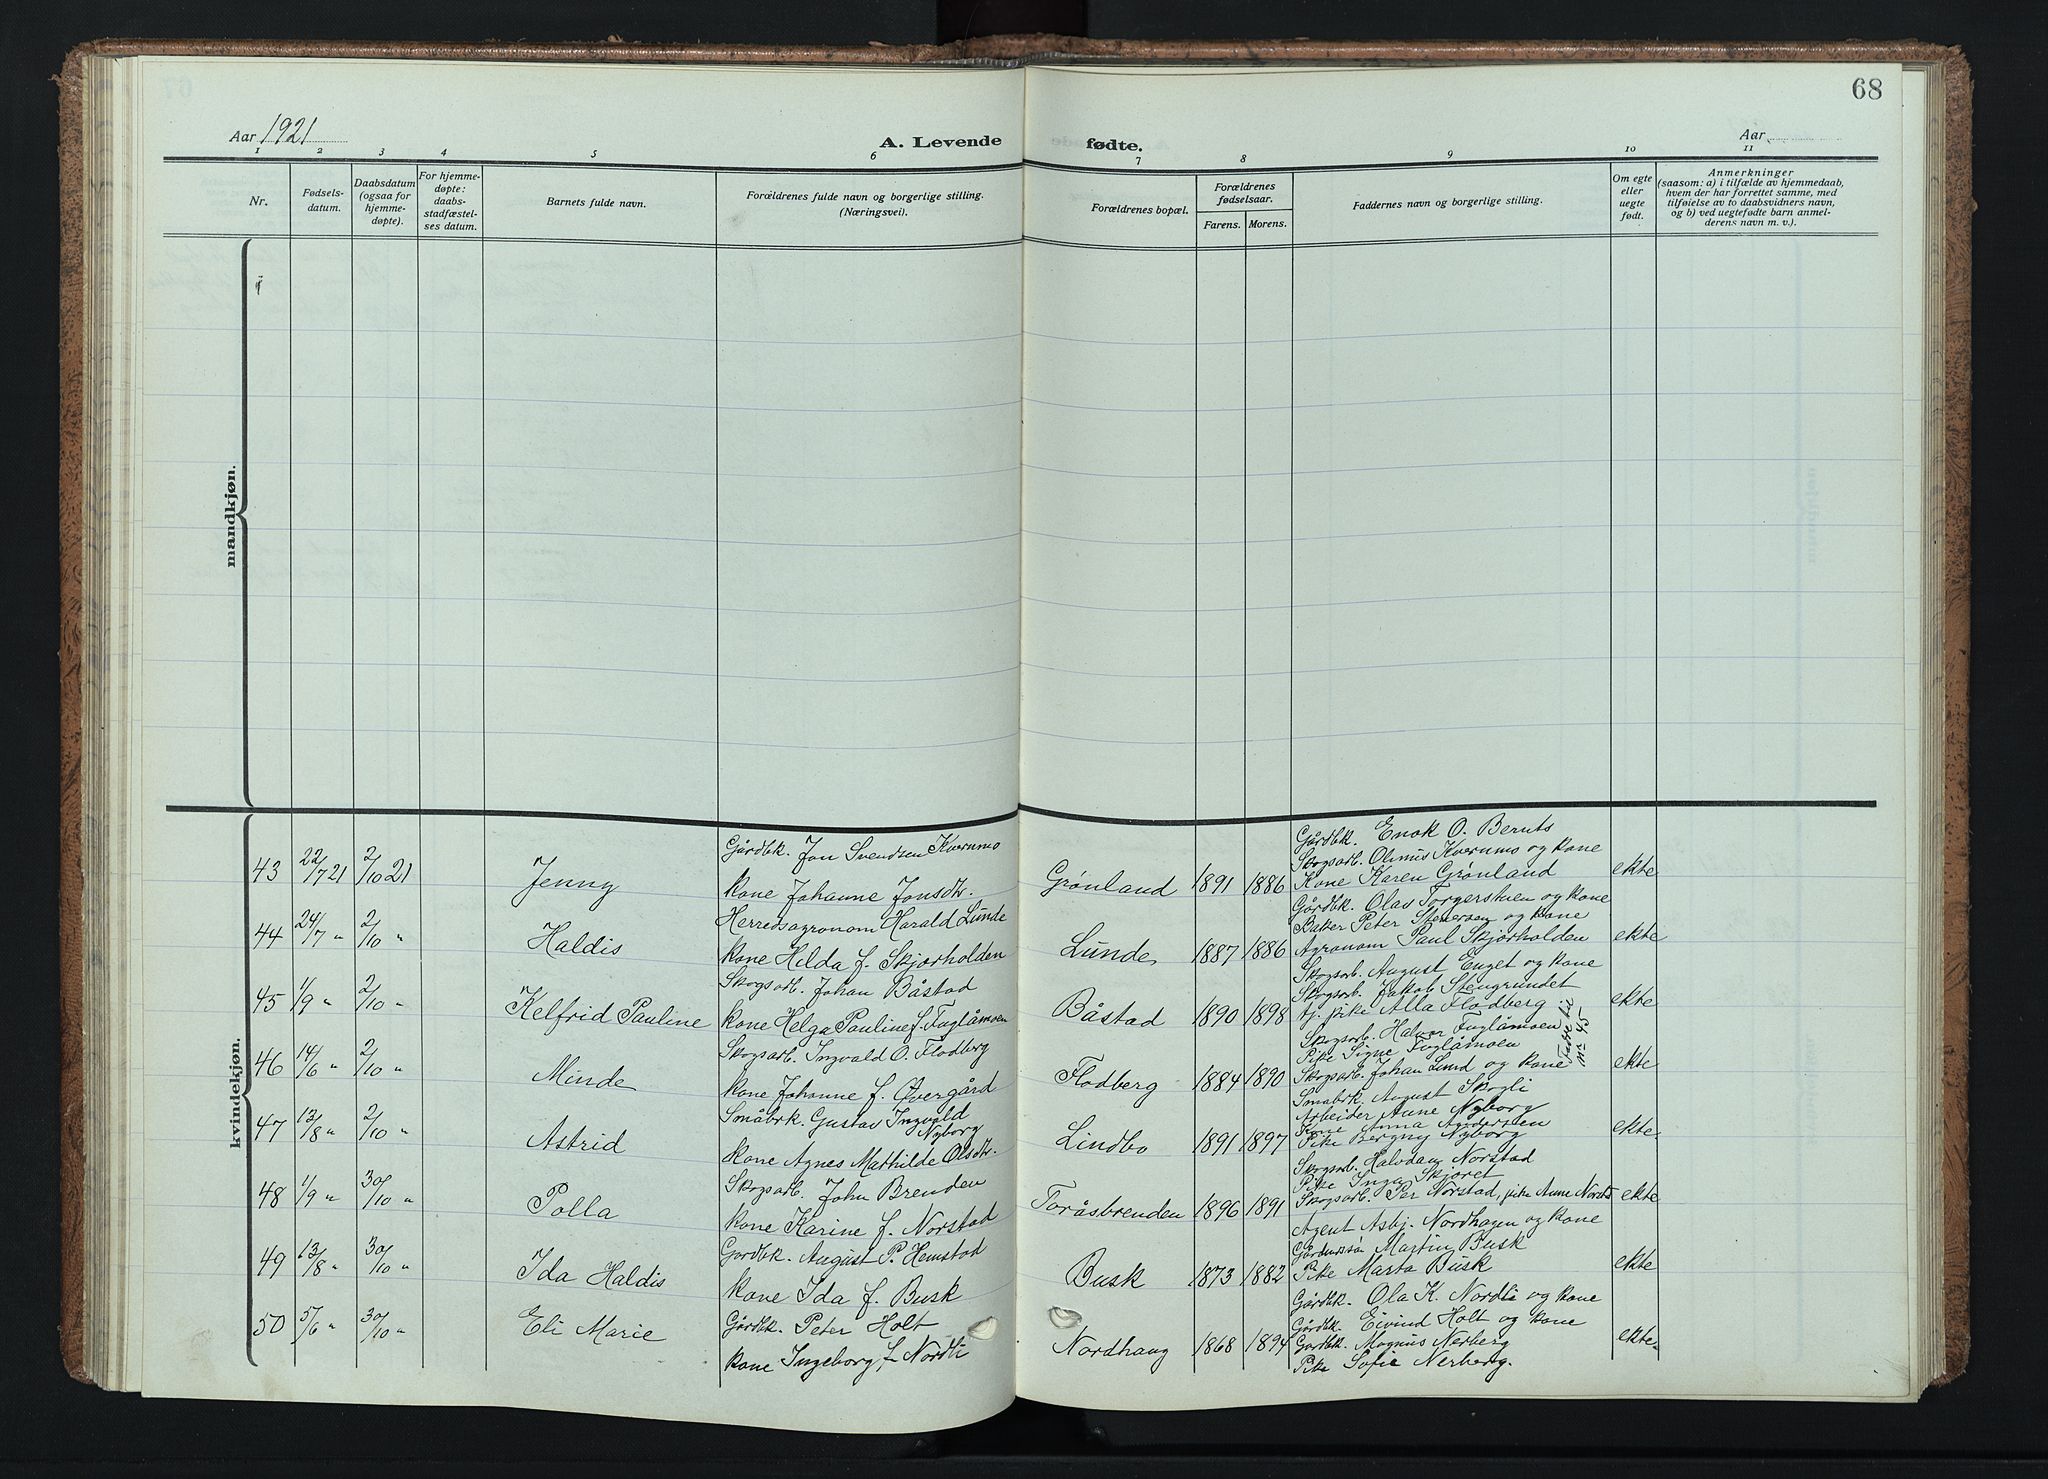 68
Aar 1921
A. Levende
fødte.
Aar
1 2 3 4 5 6 7 8 9 10 11
Nr.
Fødsels-
datum.
Daabsdatum
(ogsaa for
hjemme-
døpte).
For hjemme-
døpte:
daabs-
stadfæstel-
ses datum.
Barnets fulde navn.
Forældrenes fulde navn og borgerlige stilling.
(Næringsvei).
Forældrenes bopæl.
Forældrenes
fødselsaar.
Farens. Morens.
Faddernes navn og borgerlige stilling.
Om egte
eller
uegte
født.
Anmerkninger
(saasom: a) i tilfælde av hjemmedaab,
hvem der har forrettet samme, med
tilføielse av to daabsvidners navn,
og b) ved uegtefødte barn anmel-
derens navn m. v.).
mandkjøn.
kvindekjøn.
43 22/7 21 2/10 21 Jenny
Gårdbk. Jon Svendsen Kvernmo
kone Johanne Jonsdtr.
Grønland 1891 1886
Gårdbk. Enok O. Beruts
Skogsarb. Olinus Kvernmo og kone
Kone Karen Grønland
Gårdbk. Olav Torgerstuen og kone
ekte
44 24/7 " 2/10 " Haldis
Herredsagronom Harald Lunde
kone Hilda f. Skjærholden
Lunde 1887 1886
Baker Peter Stenersen og kone
Agronom Paul Skjørholden
ekte
45 1/9 " 2/10 " Kelfrid Pauline
Skogsarb. Johan Båstad
kone Helga Pauline f. Fuglåmoen
Båstad 1890 1898
Skogsarb. August Enget og kone
Skogsarb. Jakob Stengrundet
tj. pike Alla Flodberg
Skogsarb. Halvor Fuglåmoen
Fadder til
nr 45
ekte
46 14/6 " 2/10 " Minde
Skogsarb. Ingvald O. Flodberg
kone Johanne f. Øvergård
Flodberg 1884 1890
Pike Signe Fuglåmoen
Skogsarb. Johan Lund og kone
Småbrk. August Skogli
ekte
47 13/8 " 2/10 " Astrid
Småbrk. Gustav Ingvald
Nyborg
kone Agnes Mathilde Olsdtr.
Lindbo 1891 1897
Arbeider Arne Nyborg
Kone Anna Andersen
Pike Bergny Nyborg
ekte.
48 1/9 " 30/10 " Polla
Skogsarb. John Brenden
kone Karine f. Norstad
Toråsbrenden 1896 1891
Skogsarb. Halvdan Norstad
Pike Inga Skjøret
Skogsarb. Per Norstad, pike Anne Norstad
ekte
49 13/8 " 30/10 " Ida Haldis
Gårdbk. August P. Hemstad
kone Ida f. Busk
Busk 1873 1882
Agent Asbj. Nordhagen og kone
Martin Busk
Pike Marta Busk
ekte
50 5/6 " 30/10 " Eli Marie
Gårdbk. Peter Holt
kone Ingeborg f. Nordli
Nordhaug 1868 1894
Gårdbk. Ola K. Nordli og kone
Gårdbk. Eivind Holt og kone
Gårdbk. Magnus Nerberg
Pike Sofie Nerberg.
ekte.